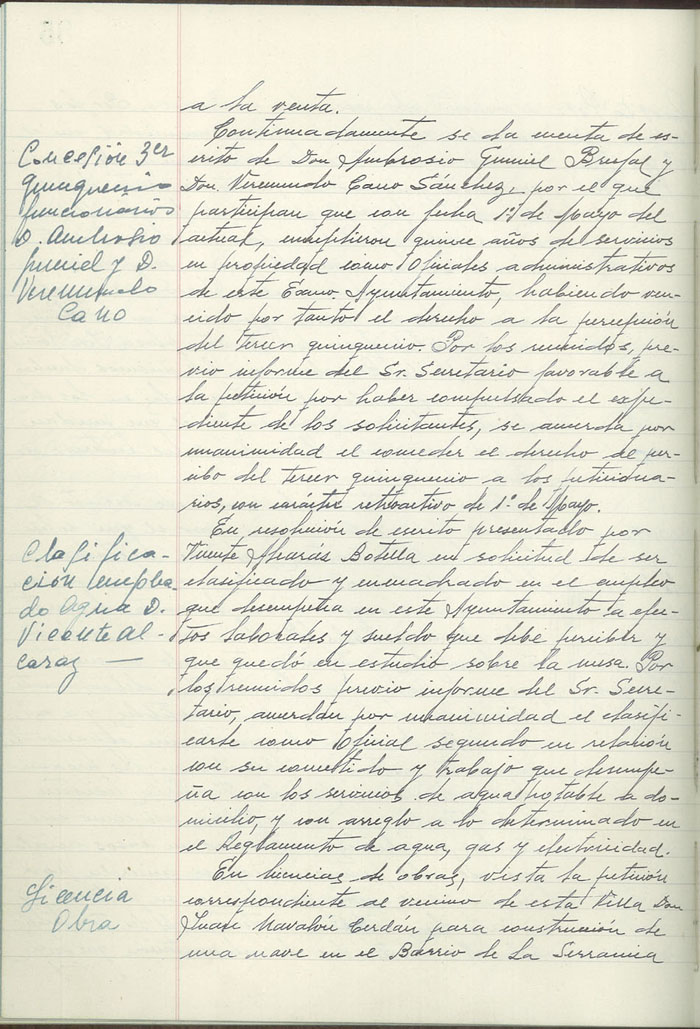 a la venta.
Concesión 3er
quinquenio
funcionarios
D. Ambrosio
Gumiel y D.
Veremundo
Cano
Continuadamente se da cuenta de es-
crito de Don Ambrosio Gumiel Brufal y
Don Veremundo Cano Sánchez, por el que
participan que con fecha 1º de Mayo del
actual, cumplieron quince años de servicios
en propiedad como Oficiales administrativos
de este Excmo. Ayuntamiento, habiendo ven-
cido por tanto el derecho a la percepción
del tercer quinquenio. Por los reunidos, pre-
vio informe del Sr. Secretario favorable a
la petición por haber compulsado el expe-
diente de los solicitantes, se acuerda por
unanimidad el conceder el derecho al per-
cibo del tercer quinquenio a los peticiona-
rios, con carácter retroactivo de 1º de Mayo.
Clasifica-
ción emplea-
do Agua D.
Vicente Al-
caraz —
En resolución de escrito presentado por
Vicente Alcaraz Botella en solicitud de ser
clasificado y encuadrado en el empleo
que desempeña en este Ayuntamiento a efec-
tos laborales y sueldo que debe percibir y
que quedó en estudio sobre la mesa. Por
los reunidos previo informe del Sr. Secre-
tario, acuerdan por unanimidad el clasifi-
carle como Oficial segundo en relación
con su cometido y trabajo que desempe-
ña con los servicios de agua potable a do-
micilio, y con arreglo a lo determinado en
el Reglamento de agua, gas y electricidad.
Licencia
Obra
En licencias de obras, vista la petición
correspondiente al vecino de esta Villa Don
Juan Navalón Cerdán para construcción de
una nave en el Barrio de La Serranica